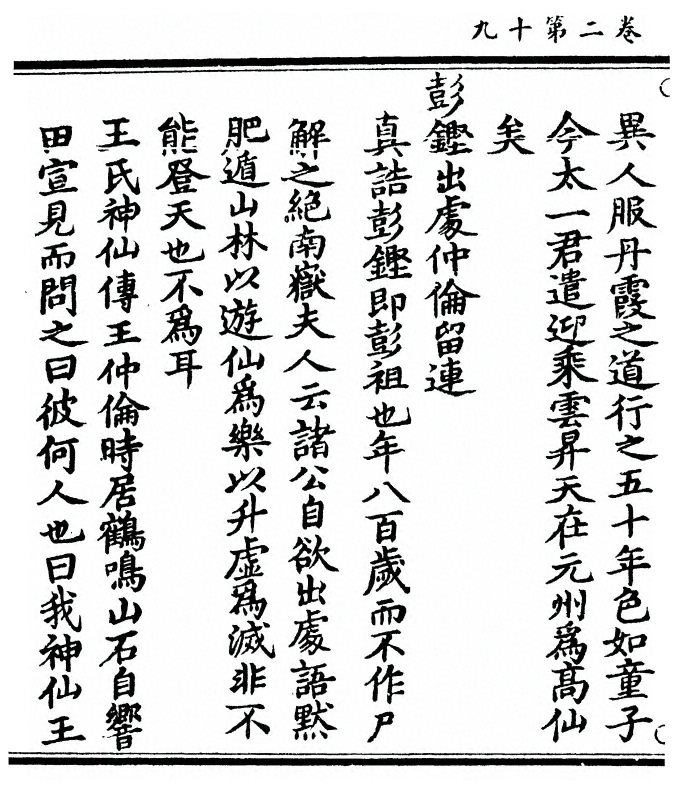 卷二第十九
異人服丹霞之道行之五十年色如童子
今太一君遣迎乘雲昇天在元州爲高仙
矣
彭鏗出處仲倫留連
真誥彭鏗即彭祖也年八百歲而不作尸
解之絕南嶽夫人云諸公自欲出處語默
肥遁山林以遊仙爲樂以升虛爲滅非不
能登天也不爲耳
王氏神仙傳王仲倫時居鶴鳴山石自響
田宣見而問之曰彼何人也曰我神仙王